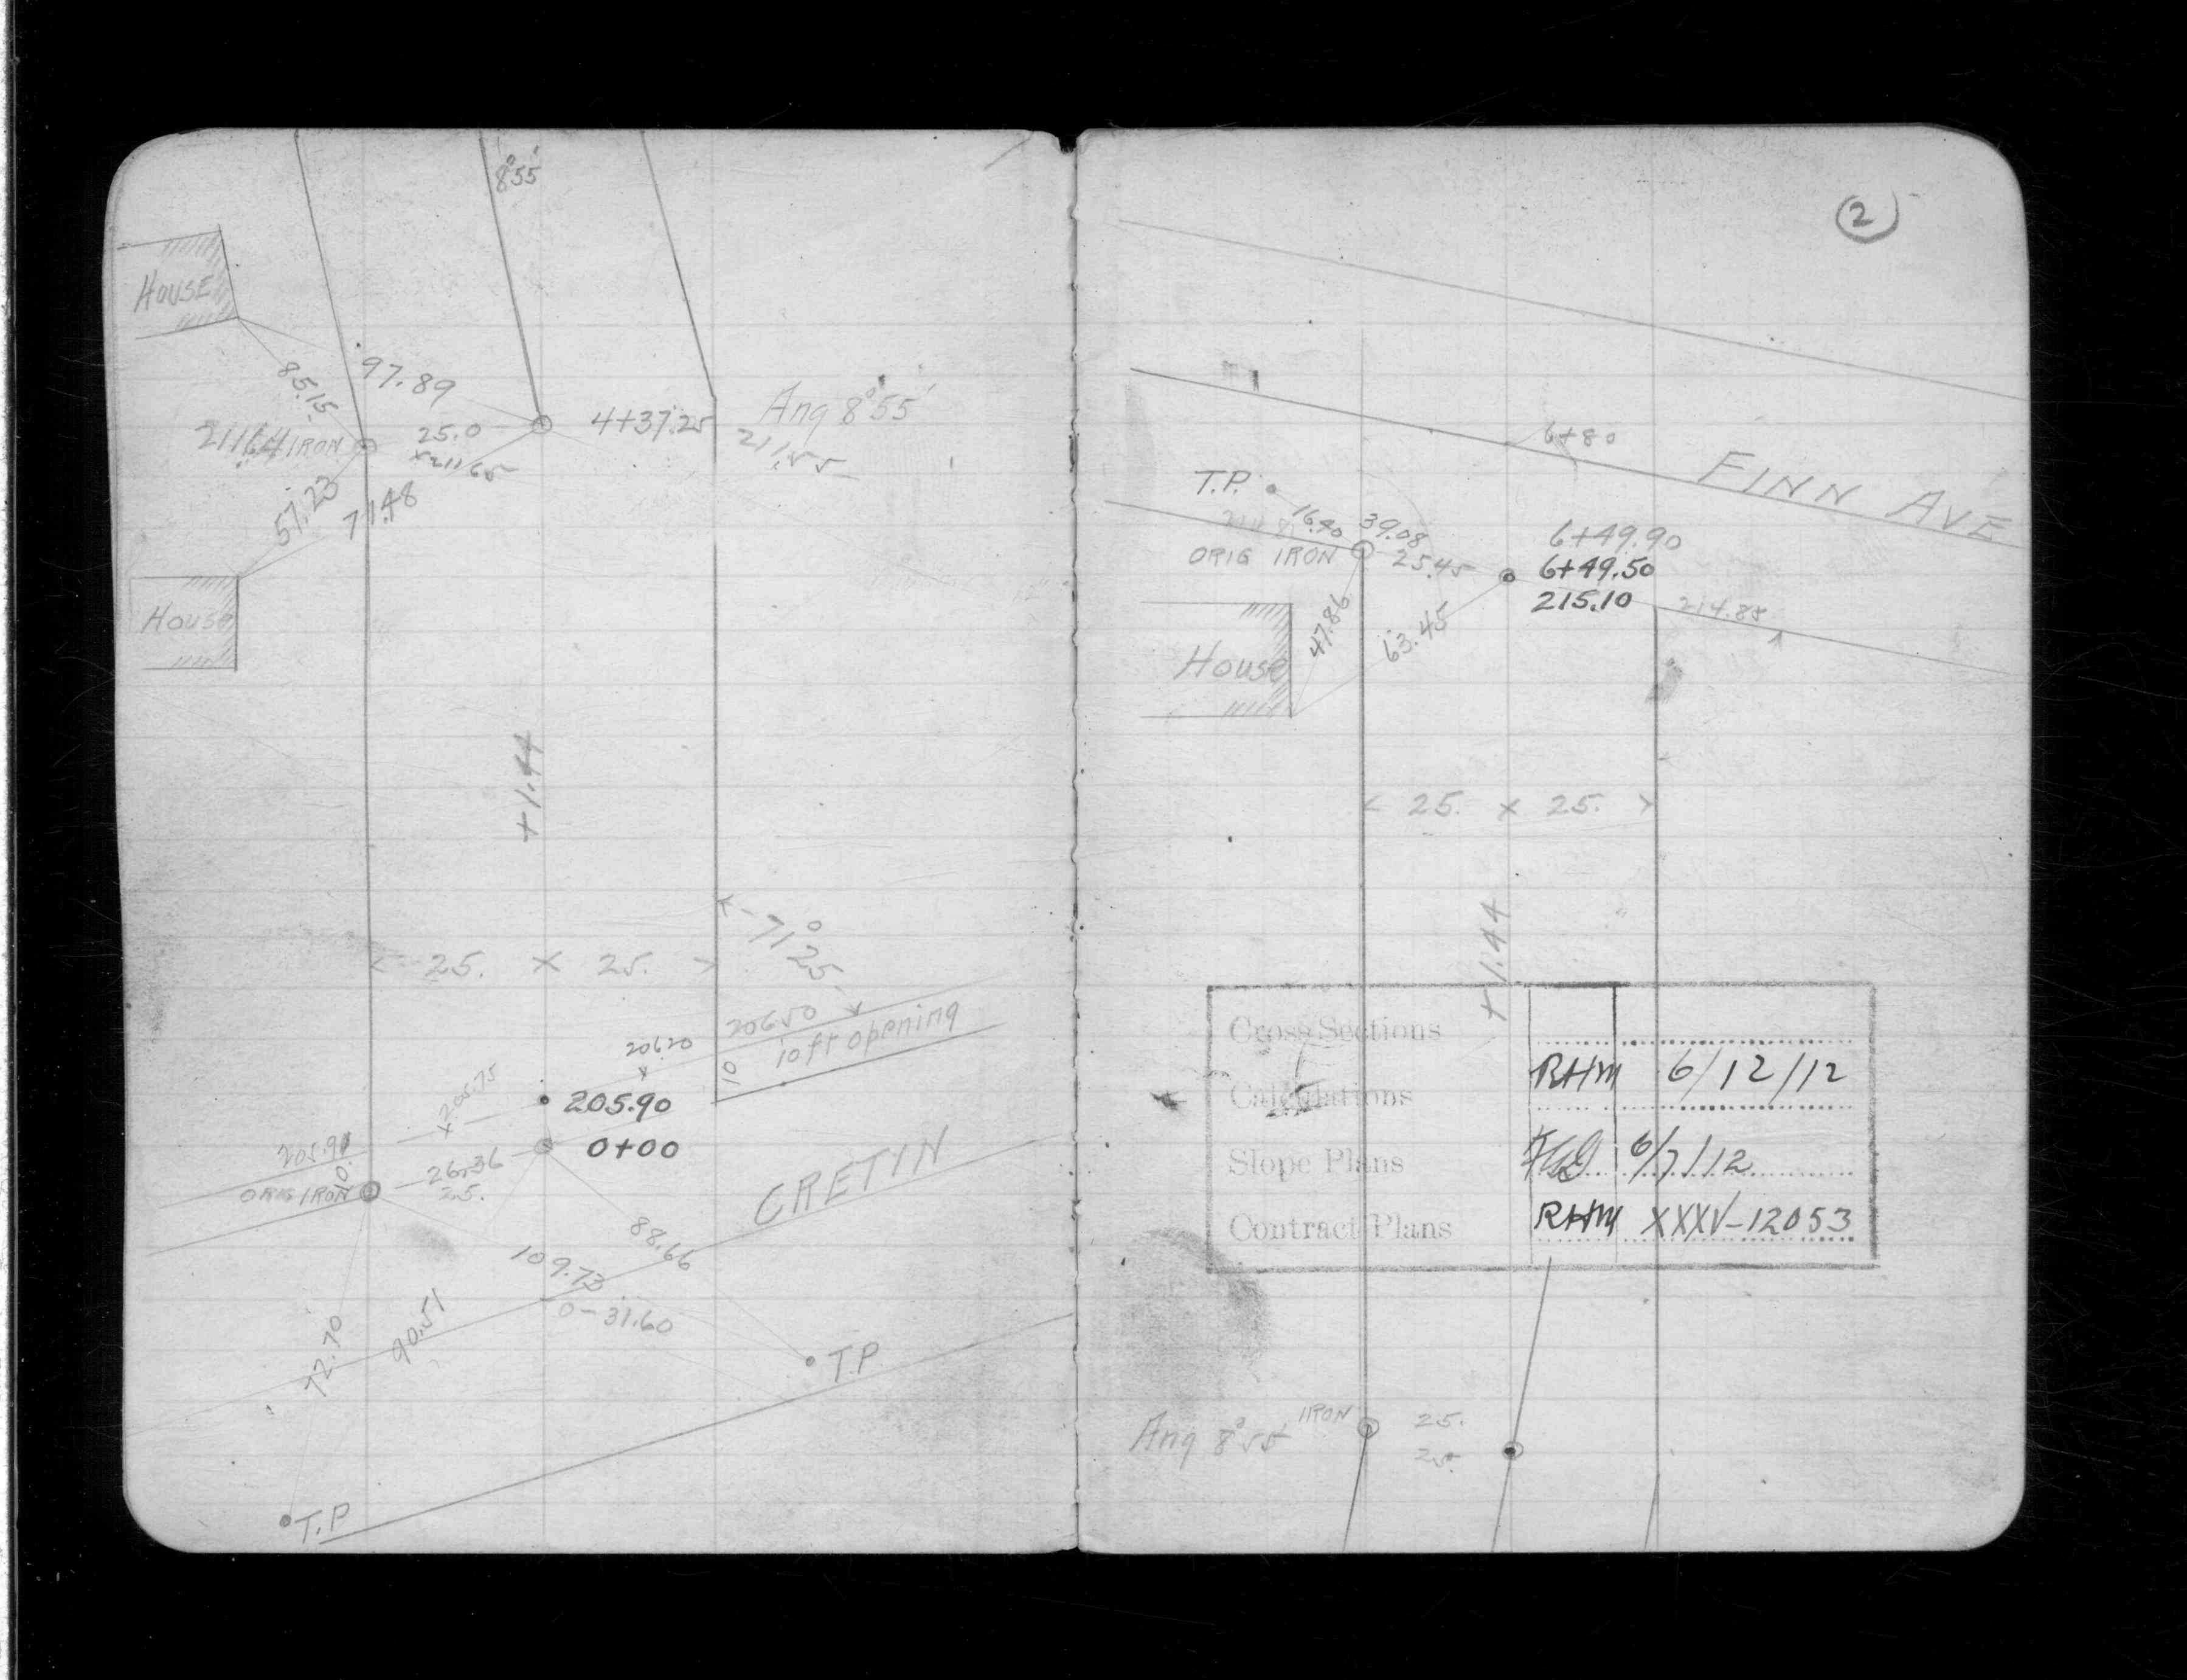 8°55'
HOUSE
85.15
97.89
Ang 8°55'
211.64 IRON
25.0
4+37.25
x211.65
211.55
57.23
77.48
House
+1.44
71°25'
25. x 25.
206.50
10 ft opening
206.20
x
10
x 205.75
205.90
0+00
205.90
10.
ORIG IRON
26.36
25.
CRETIN
88.66
109.73
0-31.60
72.70
90.51
T.P.
T.P
2
6+80
FINN AVE
T.P.
16.40
39.08
6+49.90
ORIG IRON
25.45
6+49.50
215.10
214.88
47.86
63.45
House
25. x 25.
+1.44
Cross Sections
Calculations RHM 6/12/12
Slope Plans 6/7/12
Contract Plans RHM XXXV-12053
Ang 8°55'
IRON
25.
25.